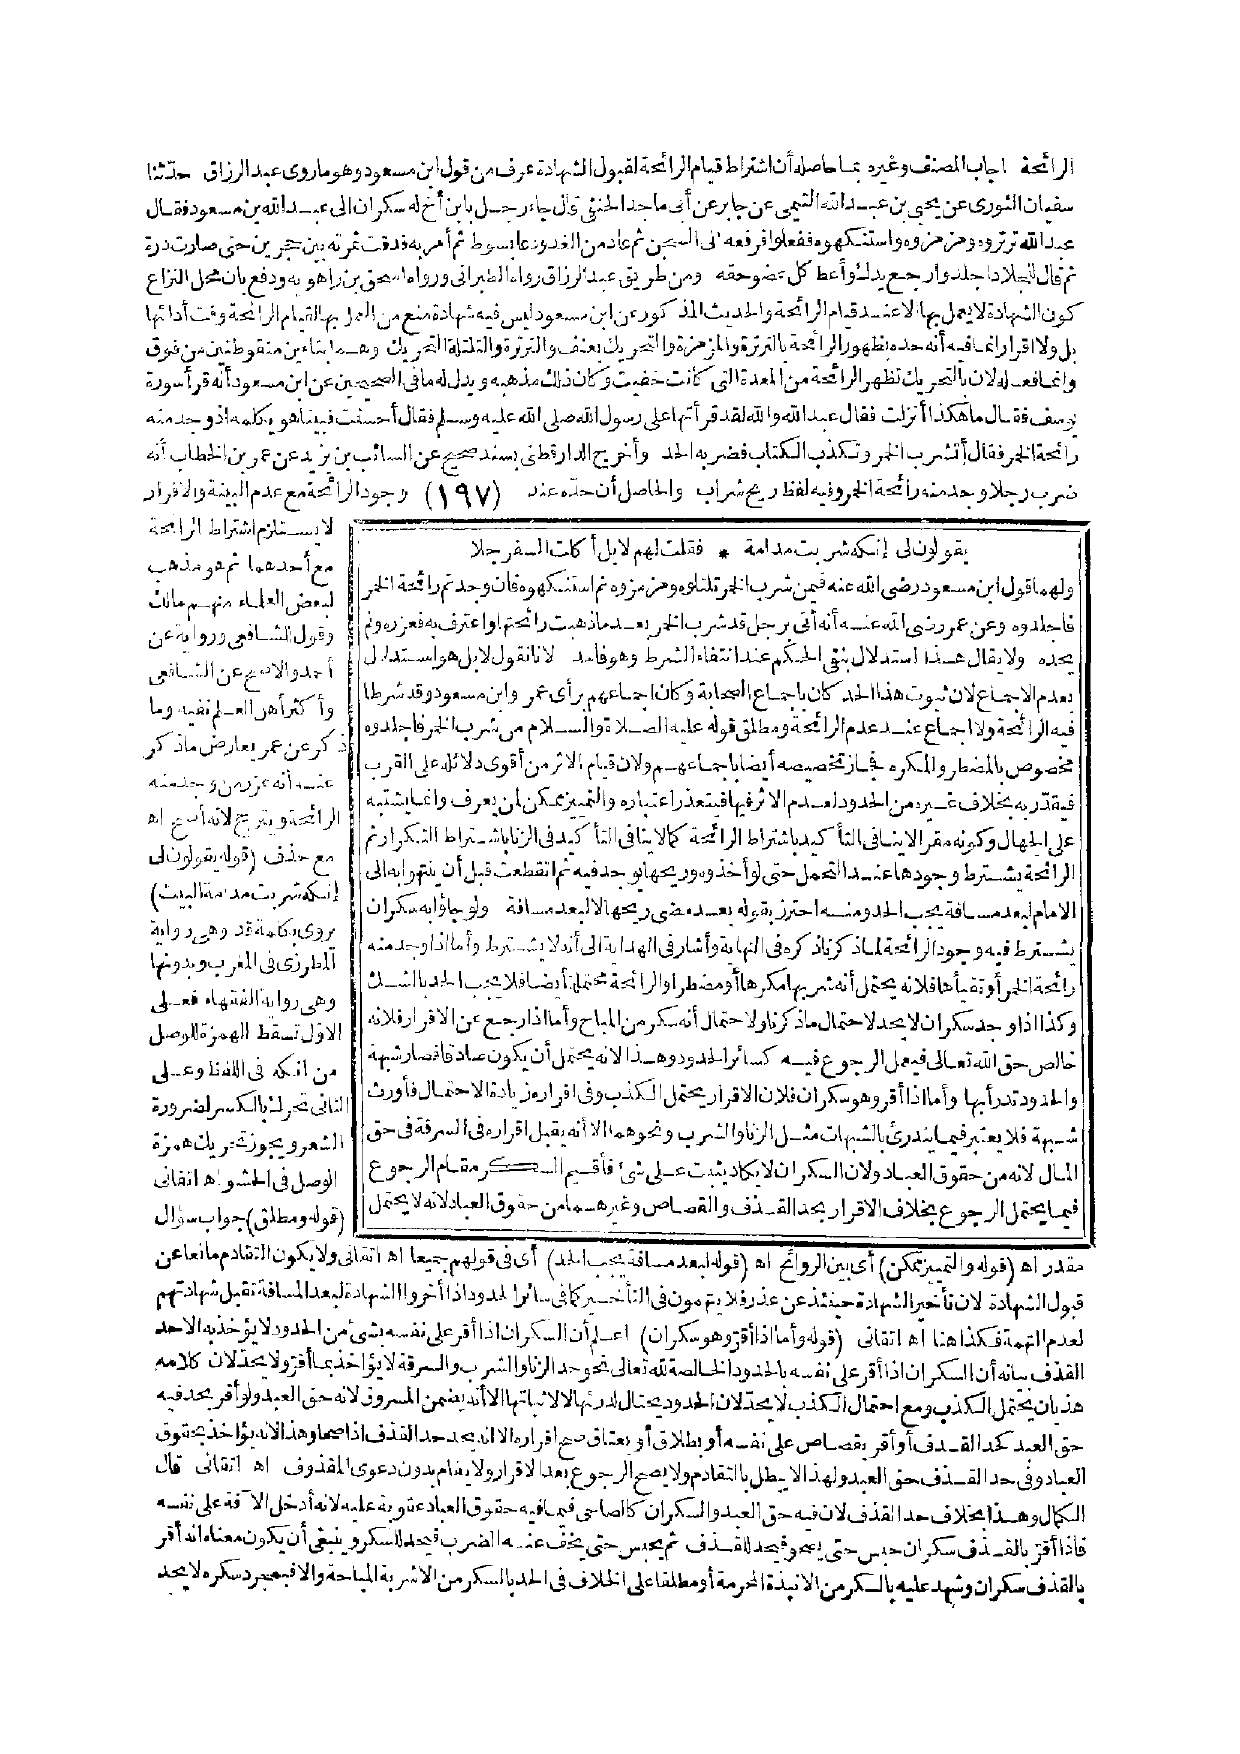 الرائحة أجاب المصنف وغيره بما حاصله أن اشتراط قيام الرائحة لقبول الشهادة عرف من قول ابن مسعود وهو ما روى عبد الرزاق حدثنا
سفيان الثوري عن يحيى بن عبد الله التيمي عن جابر عن أبي ماجد الحنفي قال جاء رجل بابن أخ له سكران إلى عبد الله بن مسعود فقال
عبد الله ترتروه ومزمزوه واستنكهوه ففعلوا فرفعه إلى السجن ثم عاد من الغد ودعا بسوط ثم أمر به فدقت ثمرته بين حجرين حتى صارت درة
ثم قال للجلاد اجلد وارجع يدك وأعط كل عضو حقه ومن طريق عبد الرزاق رواه الطبراني ورواه إسحق بن راهويه ودفع بأن محل النزاع
كون الشهادة لا يعمل بها إلا عند قيام الرائحة والحديث المذكور عن ابن مسعود ليس فيه شهادة منع من العمل بها لقيام الرائحة وقت أدائها
بل ولا إقرار إنما فيه أنه حده بظهور الرائحة بالترترة والمزمزة والتحريك بعنف والترترة والتلتلة التحريك وهما بتاءين منقوطتين من فوق
وإنما فعله لأن بالتحريك تظهر الرائحة من المعدة التي كانت خفيت وكان ذلك مذهبه ويدل له ما في الصحيحين عن ابن مسعود أنه قرأ سورة
يوسف فقال ما هكذا أنزلت فقال عبد الله والله لقد قرأتها على رسول الله صلى الله عليه وسلم فقال أحسنت فبينا هو يكلمه إذ وجد منه
رائحة الخمر فقال أتشرب الخمر وتكذب الكتاب فضربه الحد وأخرج الدارقطني بسند صحيح عن السائب بن يزيد عن عمر بن الخطاب أنه
ضرب رجلا وجد منه رائحة الخمر وفيه لفظ ريح شراب والحاصل أن حده عند (١٩٧) وجود الرائحة مع عدم البينة والاقرار
لا يستلزم اشتراط الرائحة
مع أحدهما ثم هو مذهب
لبعض العلماء منهم مالك
وقول الشافعي ورواية عن
أحمد والاصح عن الشافعي
وأكثر أهل العلم نفيه وما
ذكر عن عمر يعارض ما ذكر
عنه أنه عزر من وجد منه
الرائحة ويترجح لانه أصح اه
مع حذف (قوله يقولون لي
انكه شربت مدامة البيت)
يروى بكلمة قد وهي رواية
المطرزي في المغرب وبدونها
وهي رواية الفقهاء فعلى
الاول تسقط الهمزة للوصل
من انكه في اللفظ وعلى
الثاني تحرك بالكسر لضرورة
الشعر ويجوز تحريك همزة
الوصل في الحشو اه اتقاني
(قوله ومطلق) جواب سؤال
يقولون لي إنكه شربت مدامة * فقلت لهم لا بل أكلت السفرجلا
ولهما قول ابن مسعود رضي الله عنه فيمن شرب الخمر تلتلوه ومزمزوه ثم استنكهوه فان وجدتم رائحة الخمر
فاجلدوه وعن عمر رضي الله عنه أنه أتي برجل قد شرب الخمر بعد ما ذهبت رائحتها واعترف به فعزره ولم
يحده ولا يقال هذا استدلال بنفي الحكم عند انتفاء الشرط وهو فاسد لانا نقول لا بل هو استدلال
بعدم الاجماع لان ثبوت هذا الحد كان باجماع الصحابة وكان اجماعهم برأى عمر وابن مسعود وقد شرطا
فيه الرائحة ولا اجماع عند عدم الرائحة ومطلق قوله عليه الصلاة والسلام من شرب الخمر فاجلدوه
مخصوص بالمضطر والمكره فجاز تخصيصه أيضا باجماعهم ولان قيام الاثر من أقوى دلائله على القرب
فيقدر به بخلاف غيره من الحدود لعدم الاثر فيها فيتعذر اعتباره والتمييز ممكن لمن يعرف وانما يشتبه
على الجهال وكونه مقرا لا ينافي التأكيد باشتراط الرائحة كما لا ينافي التأكيد في الزنا باشتراط التكرار ثم
الرائحة يشترط وجودها عند التحمل حتى لو أخذوه وريحها يوجد فيه ثم انقطعت قبل أن ينتهوا به الى
الامام لبعد مسافة يجب الحد ومنه احترز بقوله بعد مضي ريحها لا لبعد مسافة ولو جاؤا به سكران
يشترط فيه وجود الرائحة لما ذكرنا ذكره في النهاية وأشار في الهداية الى أنه لا يشترط وأما اذا وجد منه
رائحة الخمر أو تقيأها فلانه يحتمل أنه شربها مكرها أو مضطرا والرائحة محتملة أيضا فلا يجب الحد بالشك
وكذا اذا وجد سكران لا يحد لاحتمال ما ذكرنا ولاحتمال أنه سكر من المباح وأما اذا رجع عن الاقرار فلانه
خالص حق الله تعالى فيعمل الرجوع فيه كسائر الحدود وهذا لانه يحتمل أن يكون صادقا فصار شبهة
والحدود تدرأ بها وأما اذا أقر وهو سكران فلان الاقرار يحتمل الكذب وفي اقراره زيادة الاحتمال فأورث
شبهة فلا يعتبر فيما يندرئ بالشبهات مثل الزنا والشرب ونحوهما الا أنه يقبل اقراره في السرقة في حق
المال لانه من حقوق العباد ولان السكران لا يكاد يثبت على شئ فأقيم السكر مقام الرجوع
فيما يحتمل الرجوع بخلاف الاقرار بحد القذف والقصاص وغيرهما من حقوق العباد لانه لا يحتمل
مقدر اه (قوله والتمييز ممكن) أي بين الروائح اه (قوله لبعد مسافة يجب الحد) أي في قولهم جميعا اه اتقاني ولا يكون التقادم مانعا عن
قبول الشهادة لان تأخير الشهادة حينئذ عن عذر فلا يتهمون في التأخير كما في سائر الحدود اذا أخروا الشهادة لبعد المسافة تقبل شهادتهم
لعدم التهمة فكذا هنا اه اتقاني (قوله وأما اذا أقر وهو سكران) اعلم أن السكران اذا أقر على نفسه بشئ من الحدود لا يؤخذ به الا حد
القذف بيانه أن السكران اذا أقر على نفسه بالحدود الخالصة لله تعالى نحو حد الزنا والشرب والسرقة لا يؤاخذ بما أقر ولا يحد لان كلامه
هذيان يحتمل الكذب ومع احتمال الكذب لا يحد لان الحدود يحتال لدرئها لا لاثباتها الا أنه يضمن المسروق لانه حق العبد ولو أقر بحد فيه
حق العبد كحد القذف أو أقر بقصاص على نفسه أو بطلاق أو بعتاق صح اقراره الا انه يحد حد القذف اذا صحا وهذا لانه يؤاخذ بحقوق
العباد وفي حد القذف حق العبد ولهذا لا يبطل بالتقادم ولا يصح الرجوع بعد الاقرار ولا يقام بدون دعوى المقذوف اه اتقاني قال
الكمال وهذا بخلاف حد القذف لان فيه حق العبد والسكران كالصاحي فيما فيه حقوق العباد عقوبة عليه لانه أدخل الآفة على نفسه
فاذا أقر بالقذف سكران حبس حتى يصحو فيحد للقذف ثم يحبس حتى يخف عنه الضرب فيحد للسكر وينبغي أن يكون معناه انه أقر
بالقذف سكران وشهد عليه بالسكر من الانبذة المحرمة أو مطلقا على الخلاف في الحد بالسكر من الاشربة المباحة والا فبمجرد سكره لا يحد